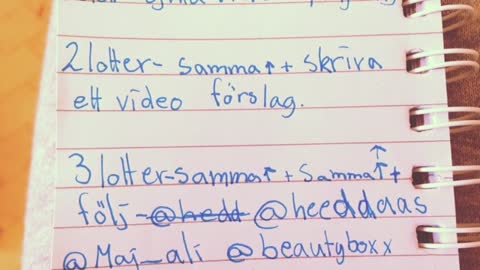 2 lotter- samma↑ + skriva
ett video förslag.
3 lotter-samma↑ + samma↑↑+
följ @hedd @heeddaas
@Maj_ali @beautyboxx